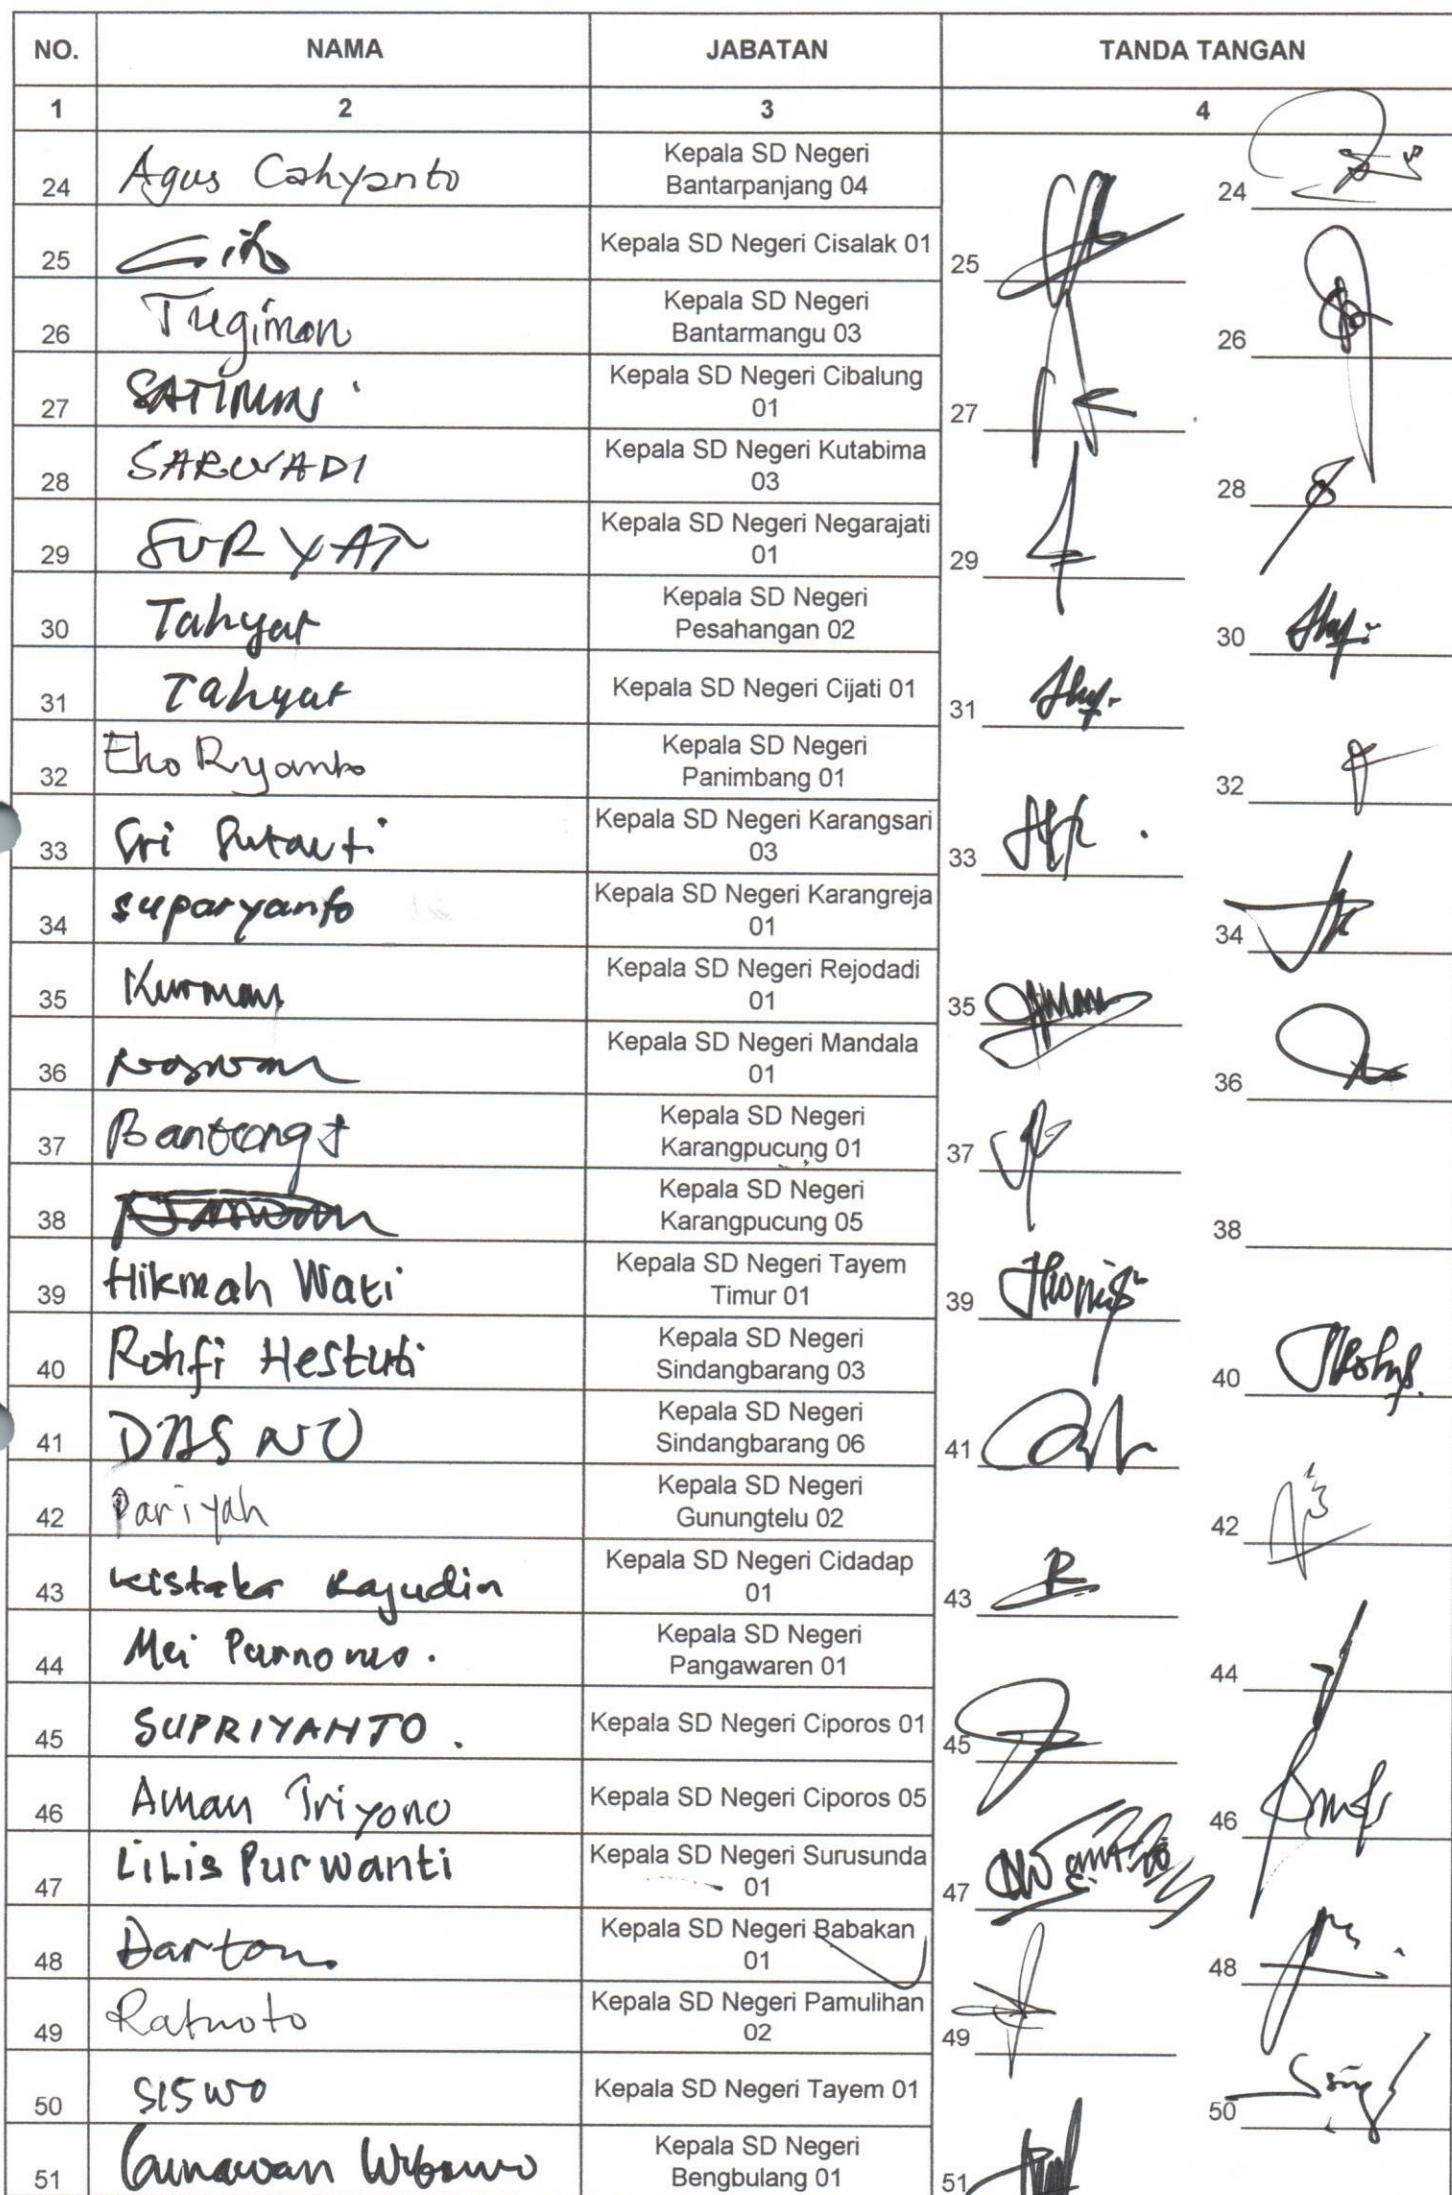 NO. NAMA JABATAN TANDA TANGAN
1 2 3 4
24 Agus Cahyanto Kepala SD Negeri
Bantarpanjang 04 24
25 Kepala SD Negeri Cisalak 01 25
26 Tugiman Kepala SD Negeri
Bantarmangu 03 26
27 Kepala SD Negeri Cibalung
01 27
28 SARWADI Kepala SD Negeri Kutabima
03 28
29 SURYAT Kepala SD Negeri Negarajati
01 29
30 Tahyat Kepala SD Negeri
Pesahangan 02 30
31 Tahyat Kepala SD Negeri Cijati 01 31
32 Eko Ryanto Kepala SD Negeri
Panimbang 01 32
33 Sri Kepala SD Negeri Karangsari
03 33
34 suparyanto Kepala SD Negeri Karangreja
01 34
35 Kurman Kepala SD Negeri Rejodadi
01 35
36 Kepala SD Negeri Mandala
01 36
37 Kepala SD Negeri
Karangpucung 01 37
38 Kepala SD Negeri
Karangpucung 05 38
39 Hikmah Wati Kepala SD Negeri Tayem
Timur 01 39
40 Rohfi Hestuti Kepala SD Negeri
Sindangbarang 03 40
41 DASNO Kepala SD Negeri
Sindangbarang 06 41
42 Pariyah Kepala SD Negeri
Gunungtelu 02 42
43 Kepala SD Negeri Cidadap
01 43
44 Mei Purnomo. Kepala SD Negeri
Pangawaren 01 44
45 SUPRIYANTO. Kepala SD Negeri Ciporos 01 45
46 Aman Triyono Kepala SD Negeri Ciporos 05 46
47 LiLis Purwanti Kepala SD Negeri Surusunda
01 47
48 Darton Kepala SD Negeri Babakan
01 48
49 Ratnoto Kepala SD Negeri Pamulihan
02 49
50 SISWO Kepala SD Negeri Tayem 01 50
51 Gunawan Wibowo Kepala SD Negeri
Bengbulang 01 51